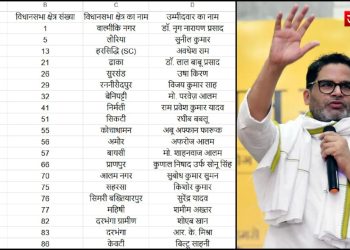 B C D
विधानसभा क्षेत्र संख्या विधानसभा क्षेत्र का नाम उम्मीदवार का नाम
1 वाल्मीकि नगर डॉ. नृग नारायण प्रसाद
5 लोरिया सुनील कुमार
13 हरसिद्धि (SC) अवधेश राम
21 ढाका डॉ. लाल बाबू प्रसाद
26 सुरसंड उषा किरण
29 रुन्नीसैदपुर विजय कुमार साह
32 बेनिपट्टी मो. परवेज आलम
41 निर्मली राम प्रवेश कुमार यादव
51 सिकटी रघीब बबलू
55 कोचाधामन अबू अफ्फान फारूक
56 अमौर अफरोज आलम
57 बायसी मो. शाहनवाज आलम
66 प्राणपुर कुणाल निषाद उर्फ सोनू सिंह
70 आलम नगर सुबोध कुमार सुमन
75 सहरसा किशोर कुमार
76 सिमरी बख्तियारपुर सुरेंद्र यादव
77 महिषी शमीम अख्तर
82 दरभंगा ग्रामीण शोएब खान
83 दरभंगा आर. के. मिश्रा
86 केवटी बिल्टू सहनी